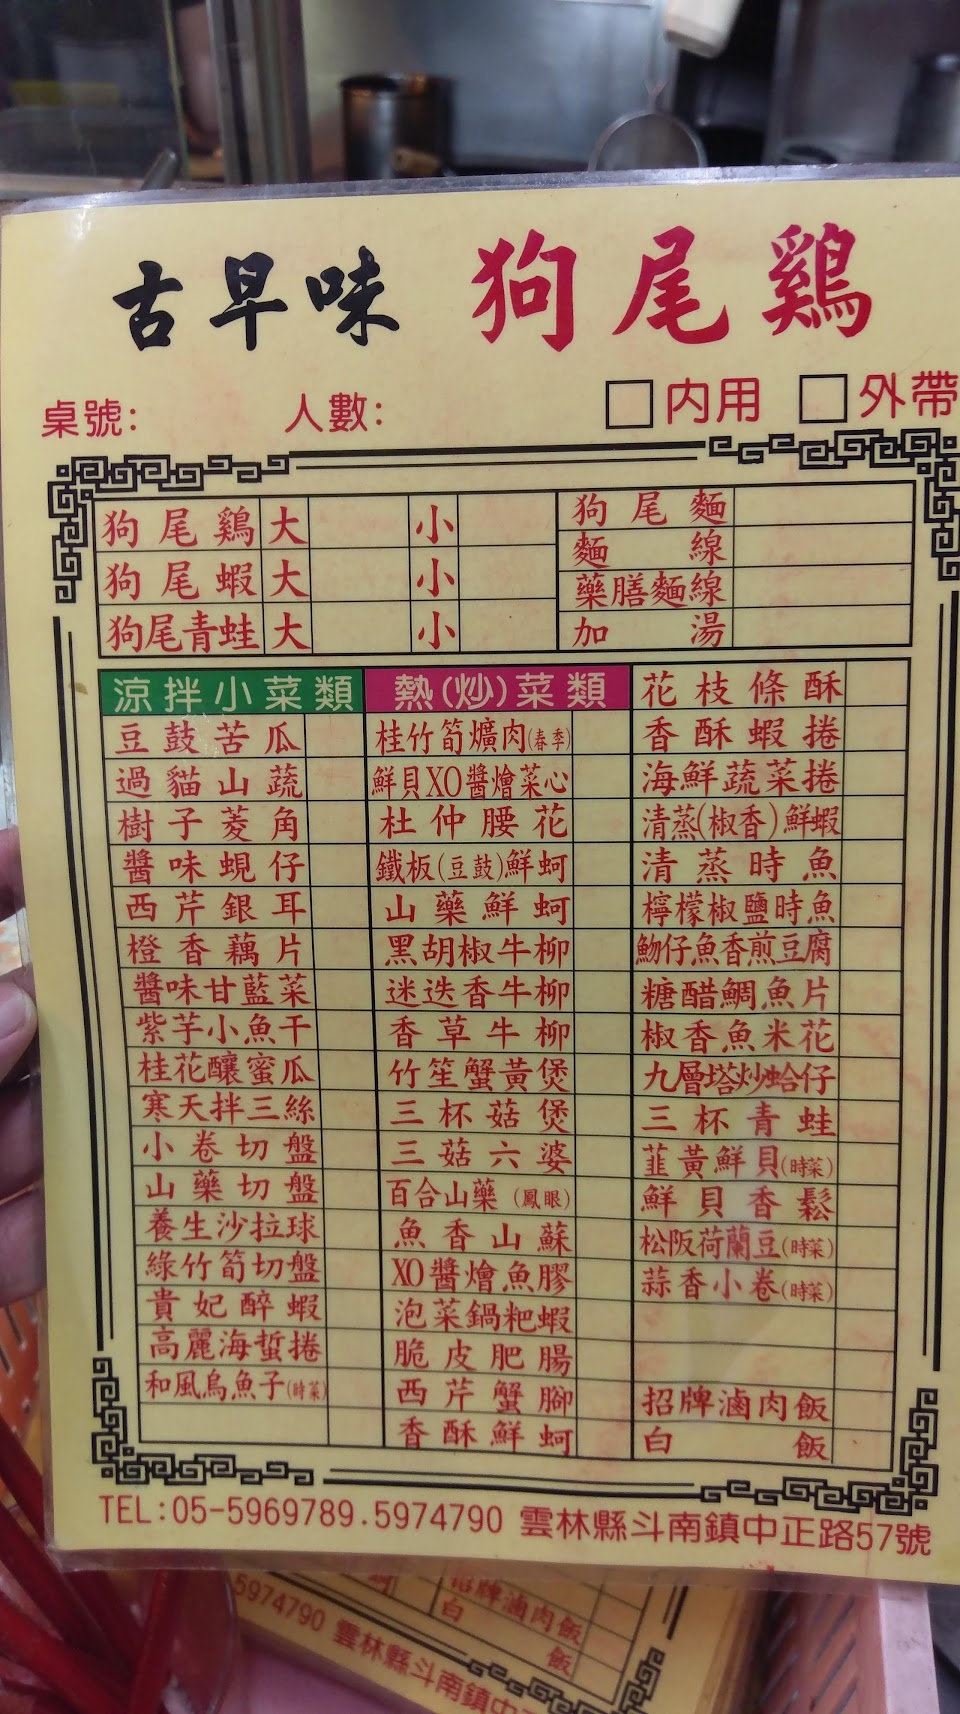 古早味 狗尾鷄
桌號: 人數: □內用 □外帶
狗尾鷄 大 小 狗尾麵
狗尾蝦 大 小 麵線
狗尾青蛙 大 小 藥膳麵線
加湯
涼拌小菜類
豆鼓苦瓜
過貓山蔬
樹子菱角
醬味蜆仔
西芹銀耳
橙香藕片
醬味甘藍菜
紫芋小魚干
桂花釀蜜瓜
寒天拌三絲
小卷切盤
山藥切盤
養生沙拉球
綠竹筍切盤
貴妃醉蝦
高麗海蜇捲
和風烏魚子(時菜)
熱(炒)菜類
桂竹筍爌肉(春季)
鮮貝XO醬燴菜心
杜仲腰花
鐵板(豆鼓)鮮蚵
山藥鮮蚵
黑胡椒牛柳
迷迭香牛柳
香草牛柳
竹笙蟹黃煲
三杯菇煲
三菇六婆
百合山藥(鳳眼)
魚香山蘇
XO醬燴魚膠
泡菜鍋粑蝦
脆皮肥腸
西芹蟹腳
香酥鮮蚵
花枝條酥
香酥蝦捲
海鮮蔬菜捲
清蒸(椒香)鮮蝦
清蒸時魚
檸檬椒鹽時魚
魩仔魚香煎豆腐
糖醋鯛魚片
椒香魚米花
九層塔炒蛤仔
三杯青蛙
韮黃鮮貝(時菜)
鮮貝香鬆
松阪荷蘭豆(時菜)
蒜香小卷(時菜)
招牌滷肉飯
白飯
TEL:05-5969789.5974790 雲林縣斗南鎮中正路57號
招牌滷肉飯
白飯
5974790 雲林縣斗南鎮中